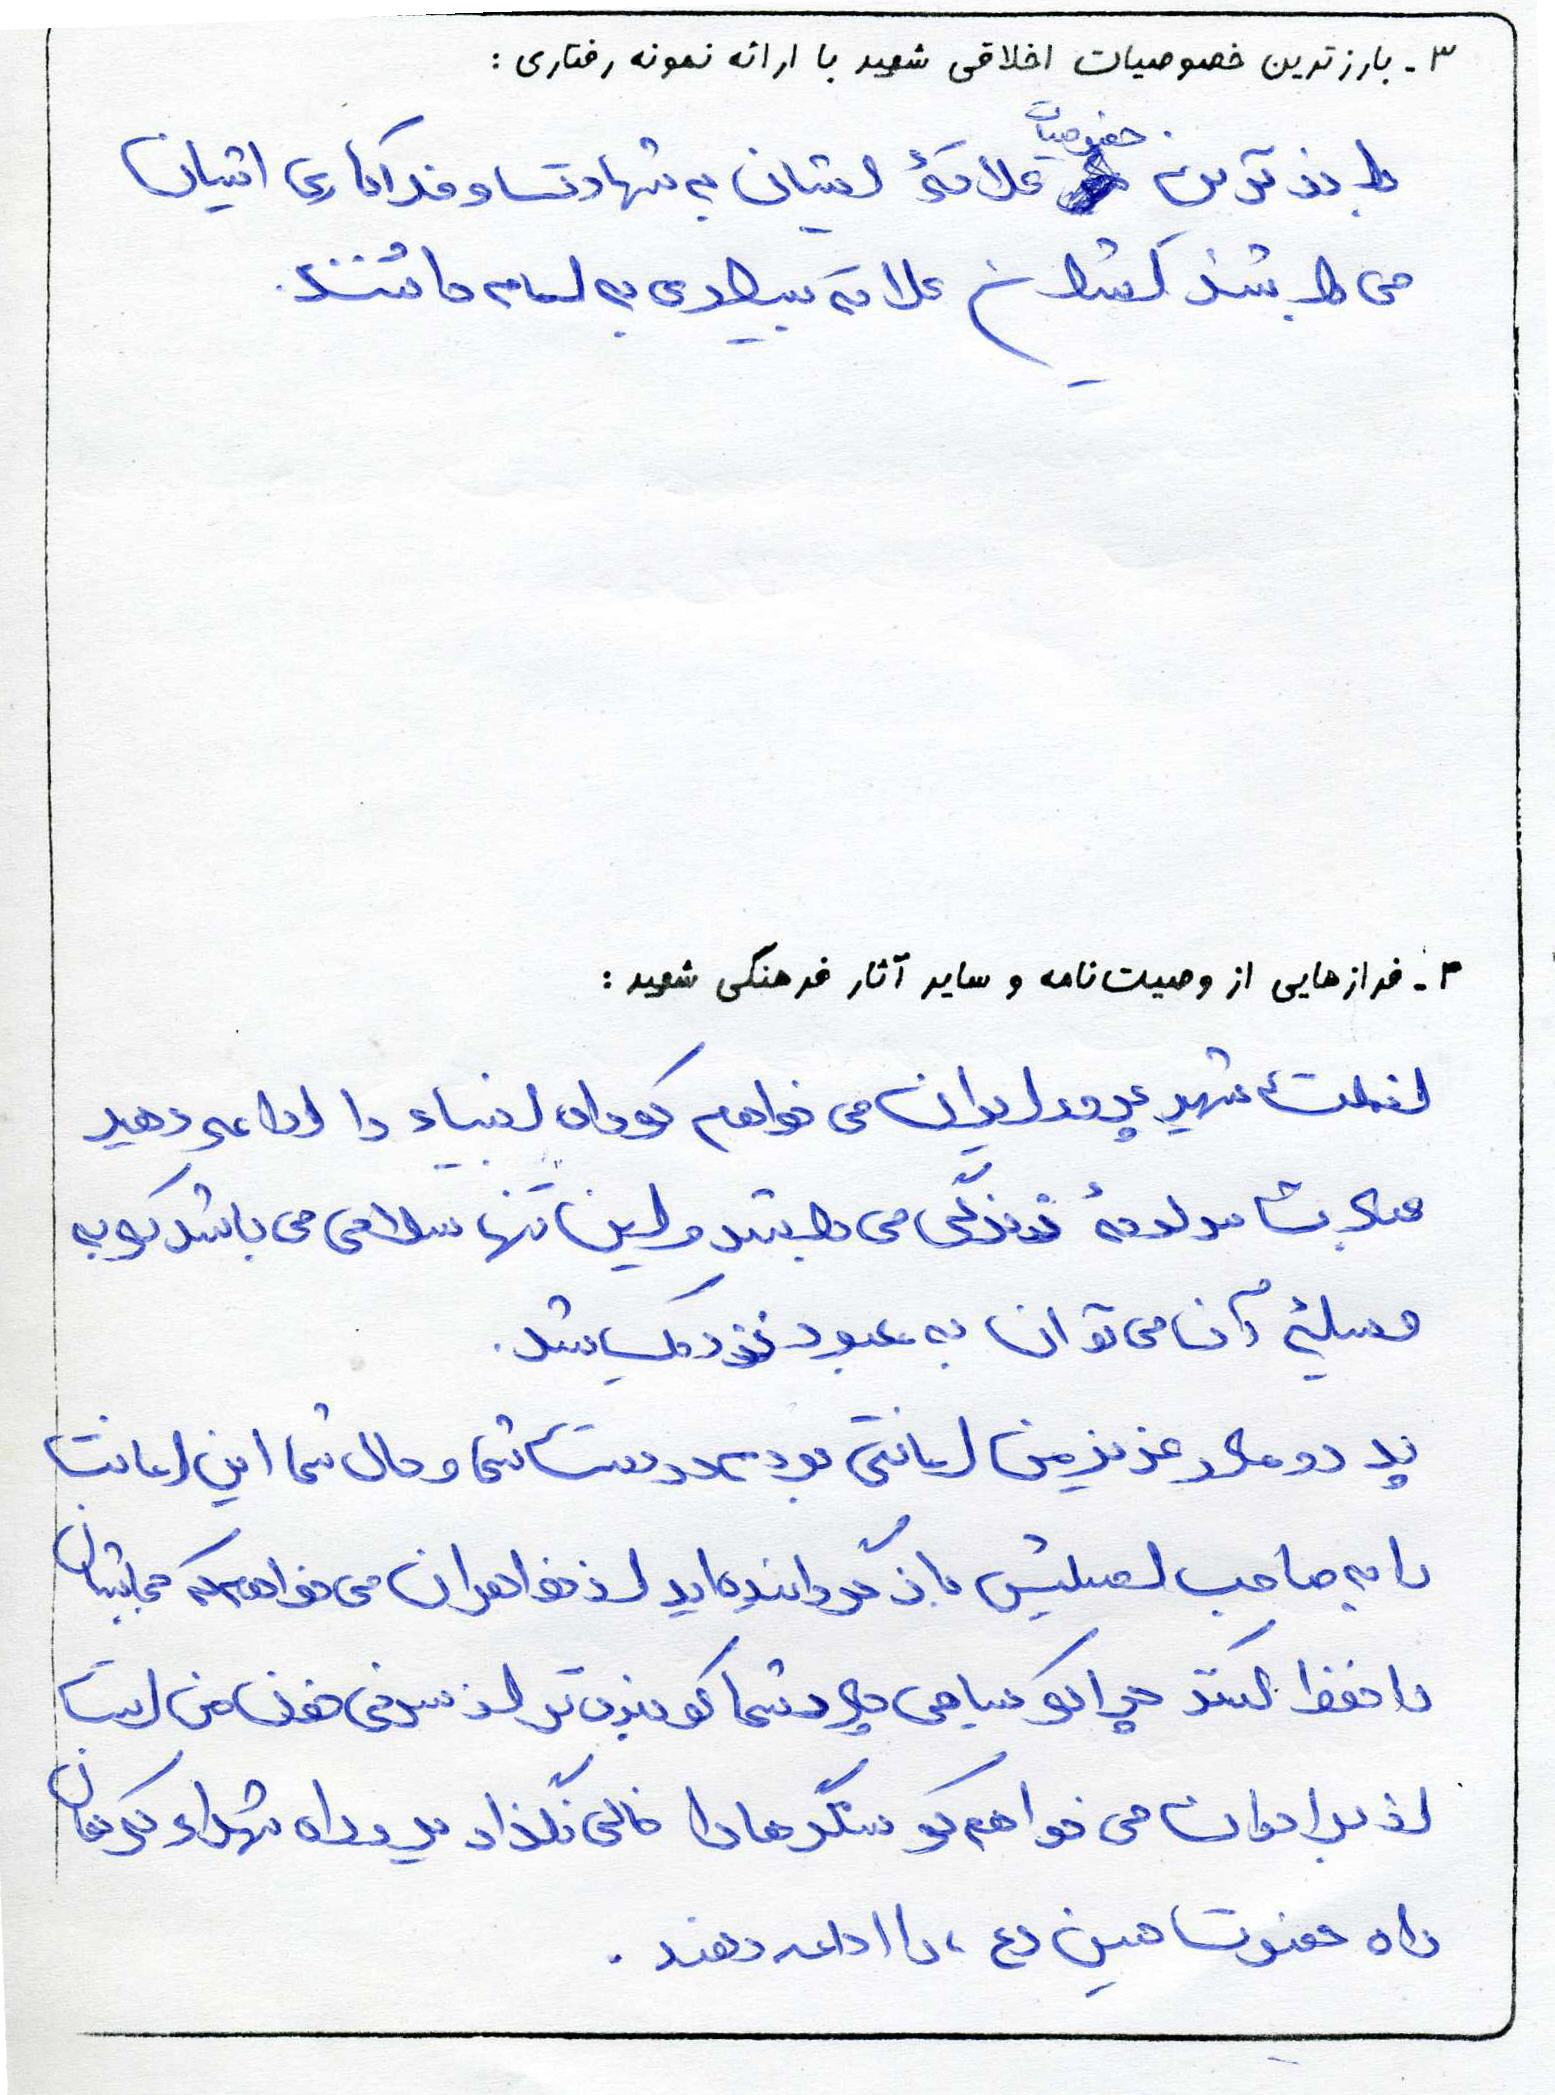 ۳ـ بارزترین خصوصیات اخلاقی شهید با ارائه نمونه رفتاری :
بارزترین خصوصیات علاقهٔ ایشان به شهادت و فداکاری ایشان
می باشند ایشان علاقه بسیاری به امام داشتند.
۴ـ فرازهایی از وصیت‌نامه و سایر آثار فرهنگی شهید :
از ملت شهید پرور ایران می خواهم که راه انبیاء را ادامه دهید
عبادت سر لوحهٔ زندگی می باشد و این تنها سلاحی می باشد که به
وسیلهٔ آن می توان به معبود نزدیک شد.
پدر و مادر عزیز من امانتی بودم در دست شما و حال شما این امانت
را به صاحب اصلیش باز گردانده اید از خواهران می خواهم که حجابشان
را حفظ کنند چرا که سیاهی چادر شما کوبنده تر از سرخی خون من است
از برادران می خواهم که سنگرها را خالی نگذارید و راه شهداء که همان
راه حضرت حسین (ع) را ادامه دهند .